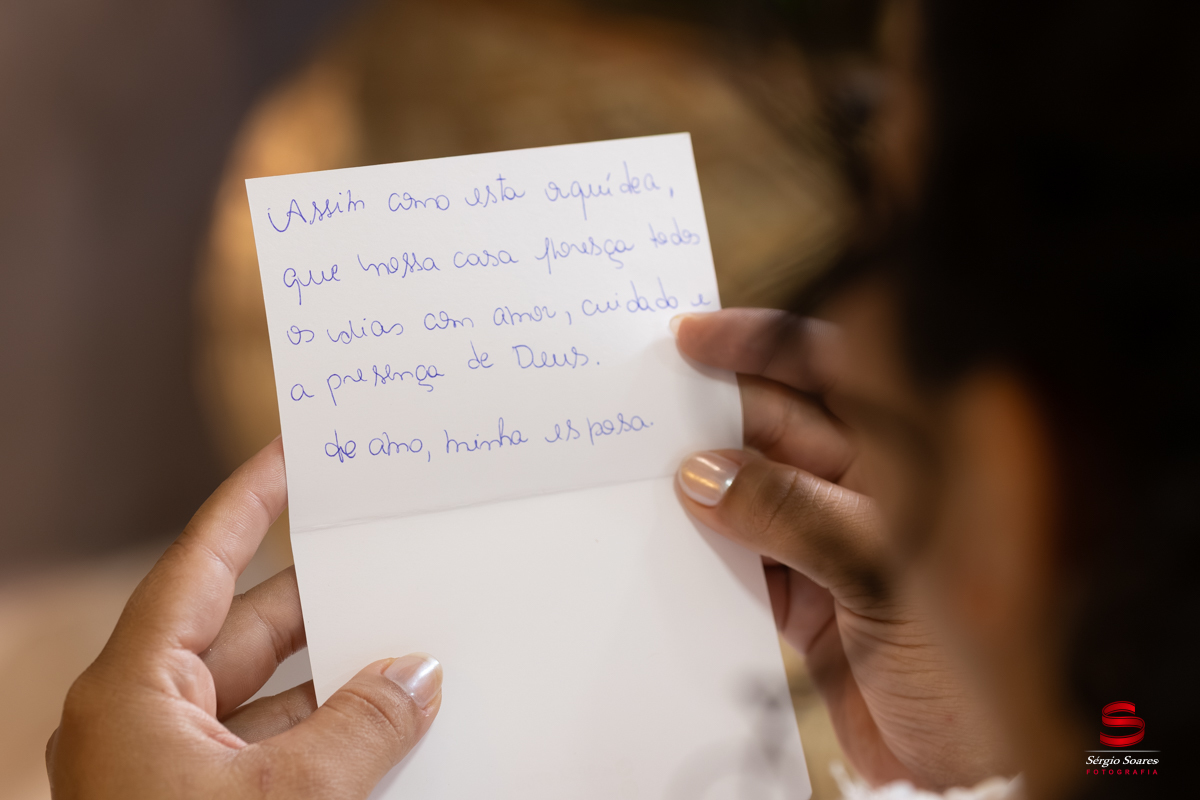 Assim como esta orquídea,
que nossa casa floresça todos
os dias com amor, cuidado e
a presença de Deus.
te amo, minha esposa.
S
Sérgio Soares
FOTOGRAFIA